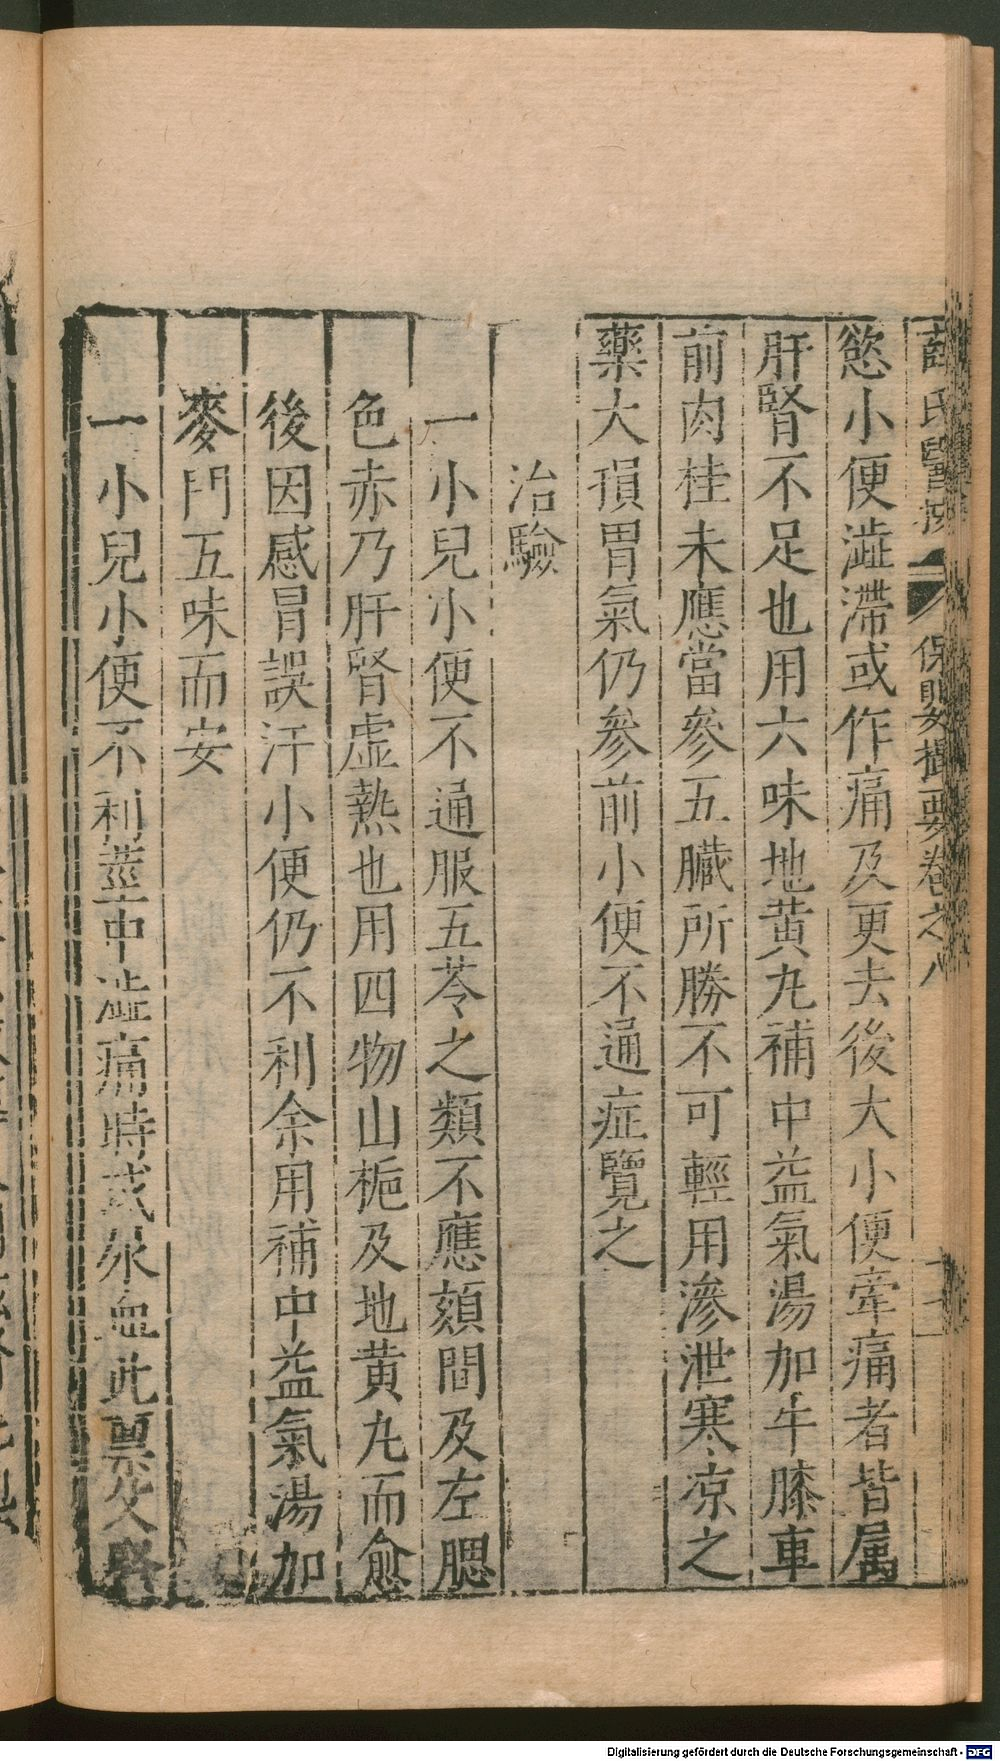 薛氏醫按 保嬰撮要卷之八
慾小便澁滯或作痛及更去後大小便牽痛者皆属
肝腎不足也用六味地黄丸補中益氣湯加牛膝車
前肉桂未應當參五臟所勝不可輕用滲泄寒凉之
藥大損胃氣仍參前小便不通症覽之
治驗
一小兒小便不通服五苓之類不應頦間及左腮
色赤乃肝腎虚熱也用四物山梔及地黄丸而愈
後因感冒誤汗小便仍不利余用補中益氣湯加
麥門五味而安
一小兒小便不利莖中澁痛時或尿血此禀父腎
Digitalisierung gefördert durch die Deutsche Forschungsgemeinschaft - DFG